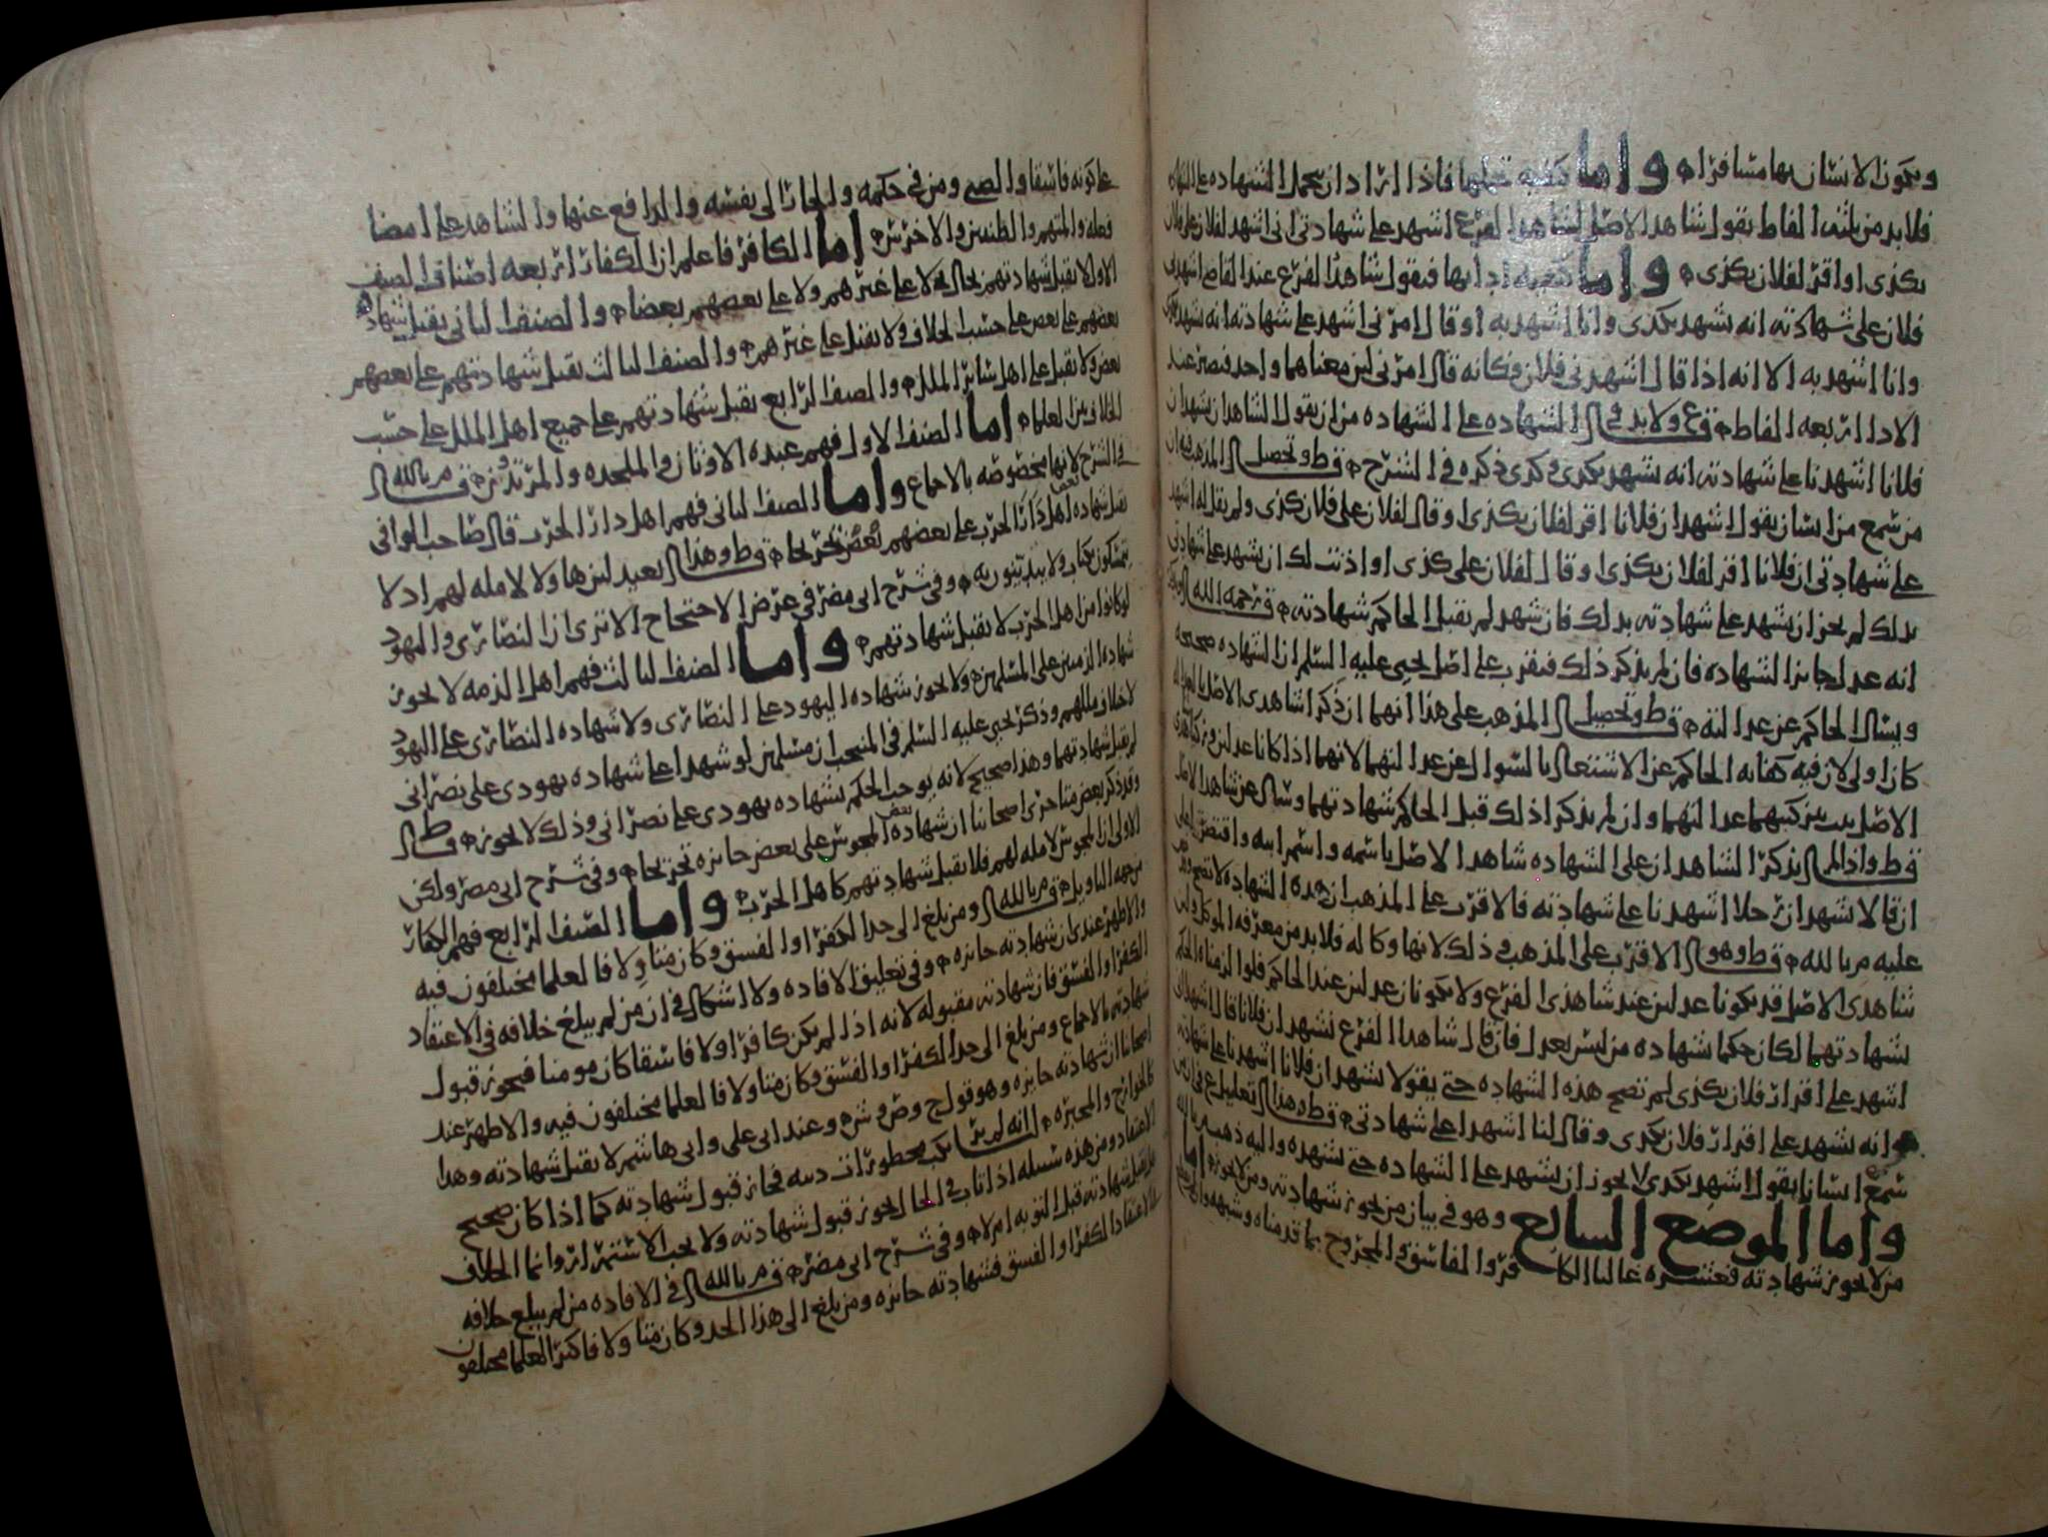 ويكون الانسان بها مسافرا واما كيفيه تحملها فاذا اراد ان يحمل الشهاده على الشهاده
فلابد من ثلثه الفاظ يقول شاهد الاصل لشاهد الفرع اشهد على شهادتي اني اشهد لفلان على فلان
بكذى او اقر لفلان بكذى واما كيفيه اداها فيقول شاهد الفرع عند القاضي اشهدني
فلان على شهادته انه يشهد بكذى وانا اشهد به او قال امرني اشهد على شهادته انه يشهد بكذى
وانا اشهد به الا انه اذا قال اشهدني فلان فكانه قال امرني لان معناهما واحد فيصير عند
الادا اربعه الفاظ فرع ولابد في الشهاده على الشهاده من ان يقول الشاهدان نشهد ان
فلانا اشهدنا على شهادته انه يشهد بكذى وكذى ذكره في الشرح قط وتحصيل المذهب فيه ان
من سمع من انسان يقول اشهد ان فلانا اقر لفلان بكذى او قال لفلان على فلان كذى ولم يقل له اشهد
على شهادتي ان فلانا اقر لفلان بكذى او قال لفلان على كذى او اذنت لك ان تشهد على شهادتي
بذلك لم يجز ان يشهد على شهادته بذلك فان شهد لم يقبل الحاكم شهادته قال رحمه الله
انه عدل جايز الشهاده فان لم يذكر ذلك فيقرب على اصل يحيى عليه السلم ان الشهاده صحيحه
ويسال الحاكم عن عدالته قط وتحصيل المذهب على هذا انهما ان ذكرا شاهدي الاصل بالعداله
كان اولى لان فيه كفايه الحاكم عن الاشتغال بالسوال عن عدالتهما لانهما اذا كانا عدلين وزكيا شاهدي
الاصل ثبت بتزكيتهما عدالتهما وان لم يذكرا ذلك قبل الحاكم شهادتهما وسال عن شاهد الاصل
قط واذا لم يذكر الشاهدان على الشهاده شاهد الاصل باسمه واسم ابيه واقتصرا على
ان قالا نشهد ان رجلا اشهدنا على شهادته فالاقرب على المذهب ان هذه الشهاده لا تصح
عليه م بالله قط وهو الاقرب على المذهب وذلك لانها وكاله فلابد من معرفه الموكل ولان
شاهدي الاصل قد يكونا عدلين عند شاهدي الفرع ولا يكونان عدلين عند الحاكم فلو الزمناه الحكم
بشهادتهما لكان حكما بشهاده من ليس بعدل فان قال شاهدا الفرع نشهد ان فلانا قال اشهدا اني
اشهد على اقرار فلان بكذى لم تصح هذه الشهاده حتى يقولا نشهد ان فلانا اشهدنا على شهادته
وانه يشهد على اقرار فلان بكذى وقال لنا اشهدا على شهادتي قط وهذا تعليل على ان من
سمع انسانا يقول اشهد بكذى لا يجوز ان يشهد على الشهاده حتى يشهده واليه ذهب م بالله
واما الموضع السابع وهو في بيان من يجوز شهادته ومن لا يجوز اما
من لا يجوز شهادته فعشره غالبا الكافر والفاسق والمجروح بما قدمناه وشبهه
على كونه فاسقا والصبي ومن في حكمه والجار الى نفسه والدافع عنها والشاهد على امضا
فعله والمتهم والظنين والاخرس اما الكافر فاعلم ان الكفار اربعه اصناف الصنف
الاول لا يقبل شهادتهم بحال لا على غيرهم ولا على بعضهم بعضا والصنف الثاني يقبل شهاده
بعضهم على بعض على حسب الخلاف ولا يقبل على غيرهم والصنف الثالث يقبل شهادتهم على بعضهم
بعض ولا يقبل على اهل ساير الملل والصنف الرابع يقبل شهادتهم على جميع اهل الملل على حسب
الخلاف بين العلما اما الصنف الاول فهم عبده الاوثان والملحده والمرتدون قال م بالله
في الشرح لانها مخصوصه بالاجماع واما الصنف الثاني فهم اهل دار الحرب قال صاحب الوافي
يقبل شهاده اهل دار الحرب على بعضهم بعض تخريجا قط وهذا بعيد لان هاولا لا مله لهم اذ لا
يتمسكون بكتاب ولا يتدينون به وفي شرح ابي مضر في عرض الاحتجاج الا ترى ان النصارى واليهود
لو كانوا من اهل الحرب لا يقبل شهادتهم واما الصنف الثالث فهم اهل الذمه لا يجوز
شهاده الذميين على المسلمين ولا يجوز شهاده اليهود على النصارى ولا شهاده النصارى على اليهود
لاختلاف مللهم وذكر يحيى عليه السلم في المنتخب ان مسلمين لو شهدا على شهاده يهودي على نصراني
لم يقبل شهادتهما وهذا صحيح لانه يوجب الحكم بشهاده يهودي على نصراني وذلك لا يجوز قط
وقد ذكر بعض متاخري اصحابنا ان شهاده المجوس بعض على بعض جايزه تخريجا وفي شرح ابي مضر ولكن
الاولى ان المجوس لا مله لهم فلا يقبل شهادتهم كاهل الحرب واما الصنف الرابع فهم الكفار
من جهه التاويل قال م بالله ومن بلغ الى حد الكفر او الفسق وكان متاولا فالعلما مختلفون فيه
والاظهر عندي ان شهادته جايزه وفي تعليق الافاده ولا اشكال في ان من لم يبلغ خلافه في الاعتقاد
الكفر او الفسق فان شهادته مقبوله لانه اذا لم يكن كافرا ولا فاسقا كان مومنا فيجوز قبول
شهادته بالاجماع ومن بلغ الى حد الكفر او الفسق وكان متاولا فالعلما مختلفون فيه والاظهر عند
اصحابنا ان شهادته جايزه وهو قول ح وص وش وعند ابي علي وابي هاشم لا يقبل شهادته وهذا
كالخوارج والمجبره انه لم يرتكب محظورات دينه فجاز قبول شهادته كما اذا كان صحيح
الاعتقاد ومن هذه سبيله اذا تاب في الحال يجوز قبول شهادته ولا يجب الاستمرار وانما الخلاف
هل يقبل شهادته قبل التوبه ام لا وفي شرح ابي مضر قال م بالله في الافاده من لم يبلغ خلافه
في الاعتقاد الكفر او الفسق فشهادته جايزه ومن بلغ الى هذا الحد وكان متاولا فاكثر العلما مختلفون